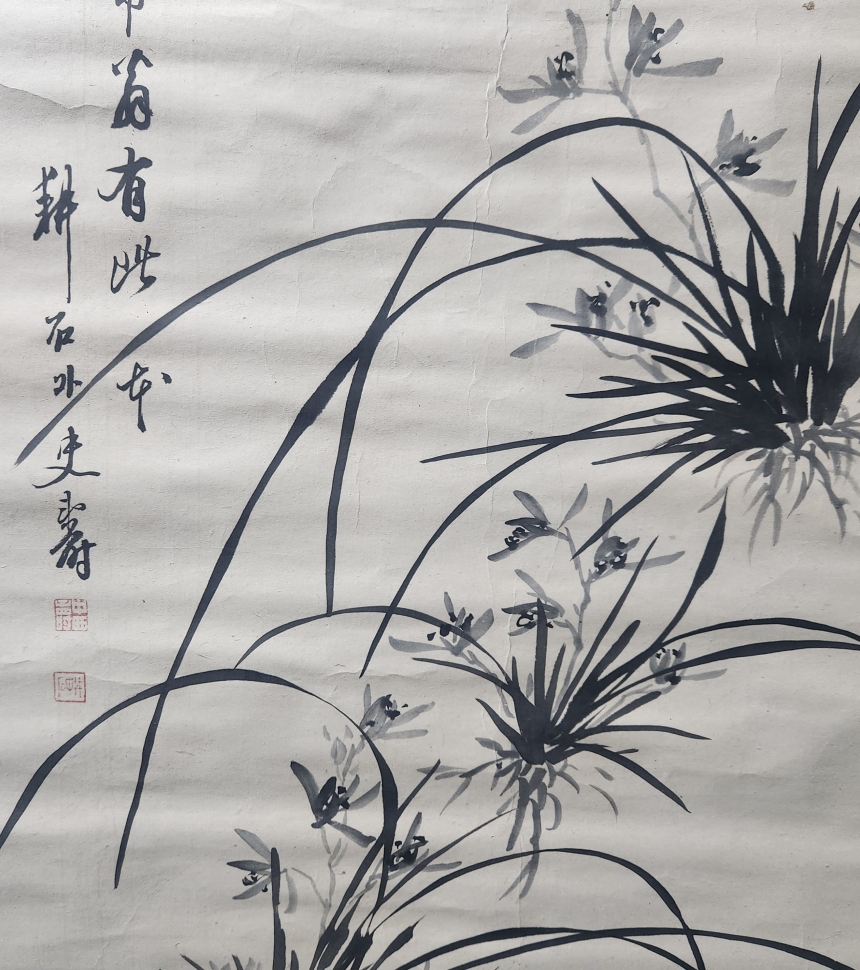 翁有此本
耕石外史壽